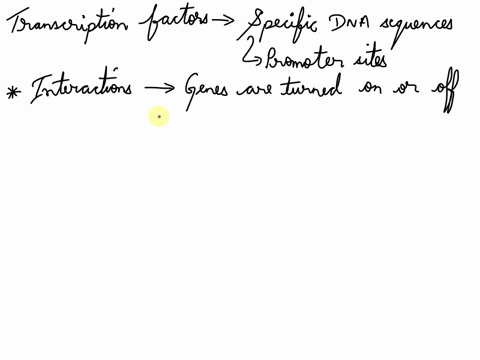 Transcription factors → Specific DNA sequences
↳ Promoter sites
* Interactions → Genes are turned on or off